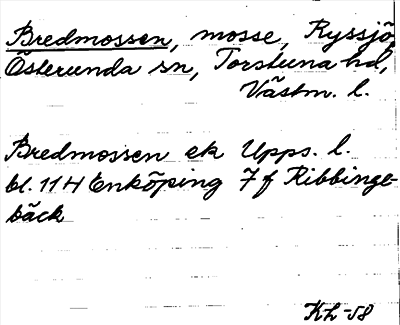 Bredmossen, mosse, Ryssjö,
Österunda sn, Torstuna hd,
Västm. l.
Bredmossen ek Upps. l.
bl. 11 H Enköping 7 f Ribbinge-
bäck
Kh -58